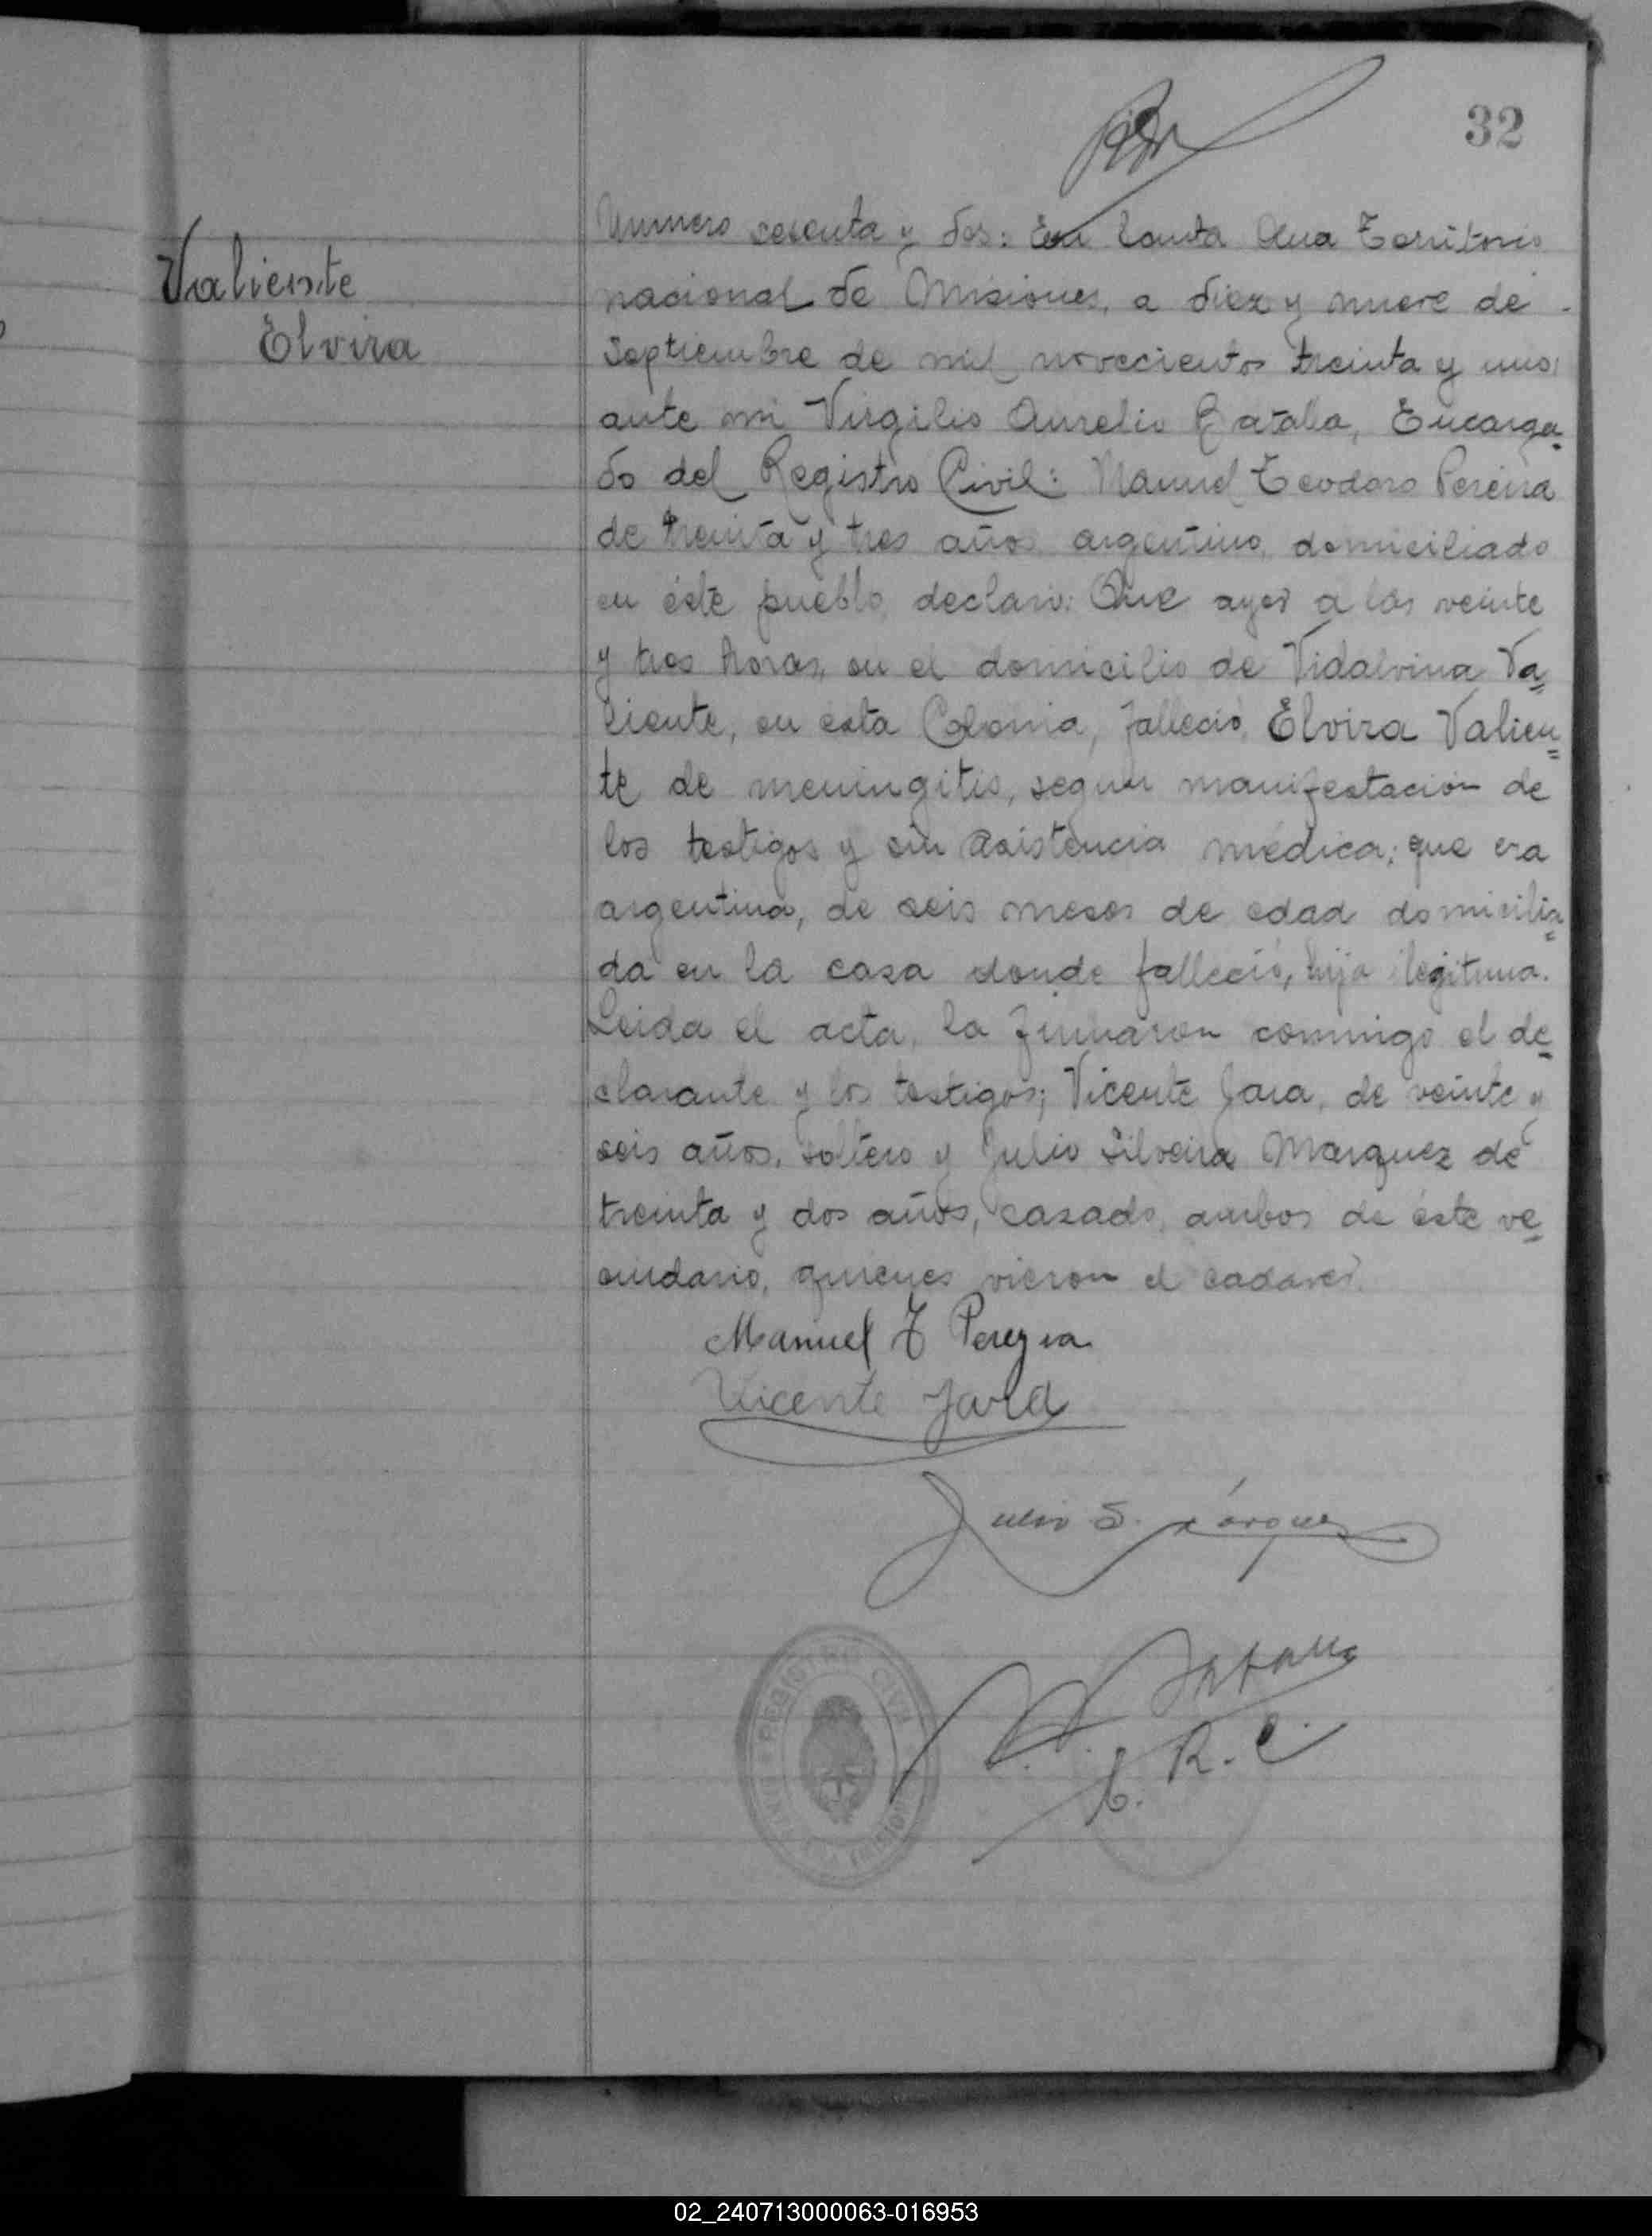 32
Valiente
Elvira
Numero sesenta y dos: En Santa Ana Territorio
nacional de Misiones, a diez y nueve de
Septiembre de mil novecientos treinta y uno,
ante mi Virgilio Aurelio Zatalla, Encarga=
do del Registro Civil: Manuel Teodoro Pereira
de treinta y tres años argentino, domiciliado
en éste pueblo, declaró: Que ayer a las veinte
y tres horas, en el domicilio de Vidalvina Va=
liente, en esta Colonia, falleció Elvira Valien=
te de meningitis, segun manifestación de
los testigos y sin asistencia médica; que era
argentina, de seis meses de edad domicilia=
da en la casa donde falleció, hija ilegitima.
Leida el acta, la firmaron conmigo el de=
clarante y los testigos; Vicente Jara, de veinte y
seis años, soltero y Julio Silveira Marquez de
treinta y dos años, casado, ambos de éste ve=
cindario, quienes vieron el cadaver.
Manuel T Pereyra
Vicente Jara
Julio S. Márquez
E. R. C.
REGISTRO CIVIL
02_240713000063-016953